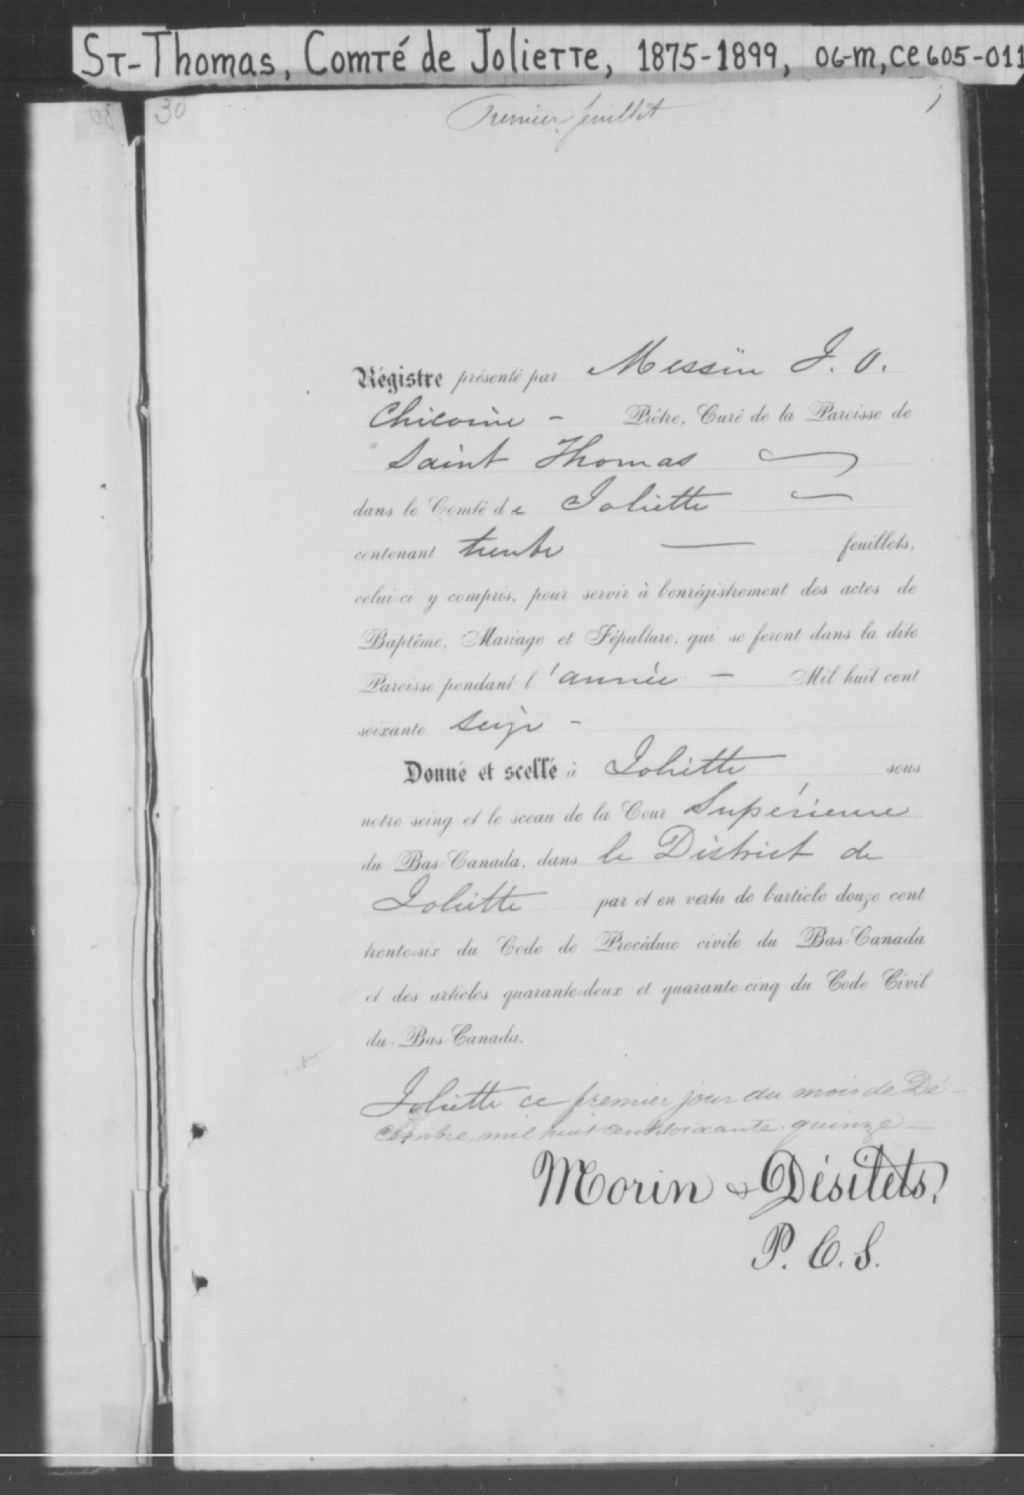 ST-Thomas, Comté de Joliette, 1875-1899, 06-M, CE605-011
30
1
Premier feuillet
Régistre présenté par Messire J. O.
Chicoine - Prêtre, Curé de la Paroisse de
Saint Thomas
dans le Comté de Joliette
contenant trente — feuillets,
celui-ci y compris, pour servir à l'enrégistrement des actes de
Baptême, Mariage et Sépulture, qui se feront dans la dite
Paroisse pendant l'année - Mil huit cent
soixante seize -
Donné et scellé à Joliette sous
notre seing et le sceau de la Cour Supérieure
du Bas-Canada, dans le District de
Joliette par et en vertu de l'article douze cent
trente-six du Code de Procédure civile du Bas-Canada
et des articles quarante-deux et quarante-cinq du Code Civil
du Bas-Canada.
Joliette ce premier jour du mois de Dé-
cembre, mil huit cent soixante quinze —
Morin & Désilets,
P. C. S.